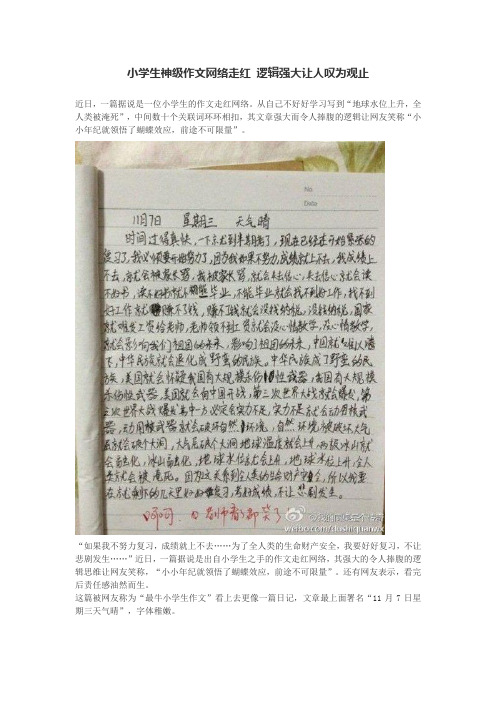 小学生神级作文网络走红 逻辑强大让人叹为观止
近日，一篇据说是一位小学生的作文走红网络。从自己不好好学习写到“地球水位上升，全
人类被淹死”，中间数十个关联词环环相扣，其文章强大而令人捧腹的逻辑让网友笑称“小
小年纪就领悟了蝴蝶效应，前途不可限量”。
No
Date
11月7日 星期三 天气晴
时间过得真快，一下就到半期考了，现在已经在开始紧张的
复习了，我必须要开始努力了，因为我如果不努力，成绩就上不去，我成绩上
不去，就会被家长骂，我被家长骂，就会失去信心，失去信心就会读
不好书，读不好书就不能毕业，不能毕业就会找不到好工作，找不到
好工作就赚不了钱，赚不了钱就会没钱纳税，没钱纳税，国家
就难发工资给老师，老师领不到工资就会没心情教学，没心情教学，
就会影响我们祖国的未来，影响了祖国的未来，中国就难以腾
飞，中华民族就会退化成野蛮的民族。中华民族成了野蛮的民
族，美国就会怀疑我国有大规模杀伤性武器，我国有大规模
杀伤性武器，美国就会向中国开战，第三次世界大战就会爆发，第
三次世界大战爆发其中一方必定会实力不足，实力不足就会动用核武
器，动用核武器就会破坏自然环境，自然环境被破坏大气
层就会破个大洞，大气层破个大洞地球温度就会上升，两极冰山就
会融化，冰山融化，地球水位就会上升，地球水位上升，全人
类就会被淹死。因为这关系到全人类的生命财产安全，所以我要
在剩下的几天里好好复习，考好成绩，不让悲剧发生。
呵呵，老师看了都笑了
weibo.com/doshiquanwx
“如果我不努力复习，成绩就上不去……为了全人类的生命财产安全，我要好好复习，不让
悲剧发生……”近日，一篇据说是出自小学生之手的作文走红网络，其强大的令人捧腹的逻
辑思维让网友笑称，“小小年纪就领悟了蝴蝶效应，前途不可限量”。还有网友表示，看完
后责任感油然而生。
这篇被网友称为“最牛小学生作文”看上去更像一篇日记，文章最上面署名“11月7日星
期三天气晴”，字体稚嫩。